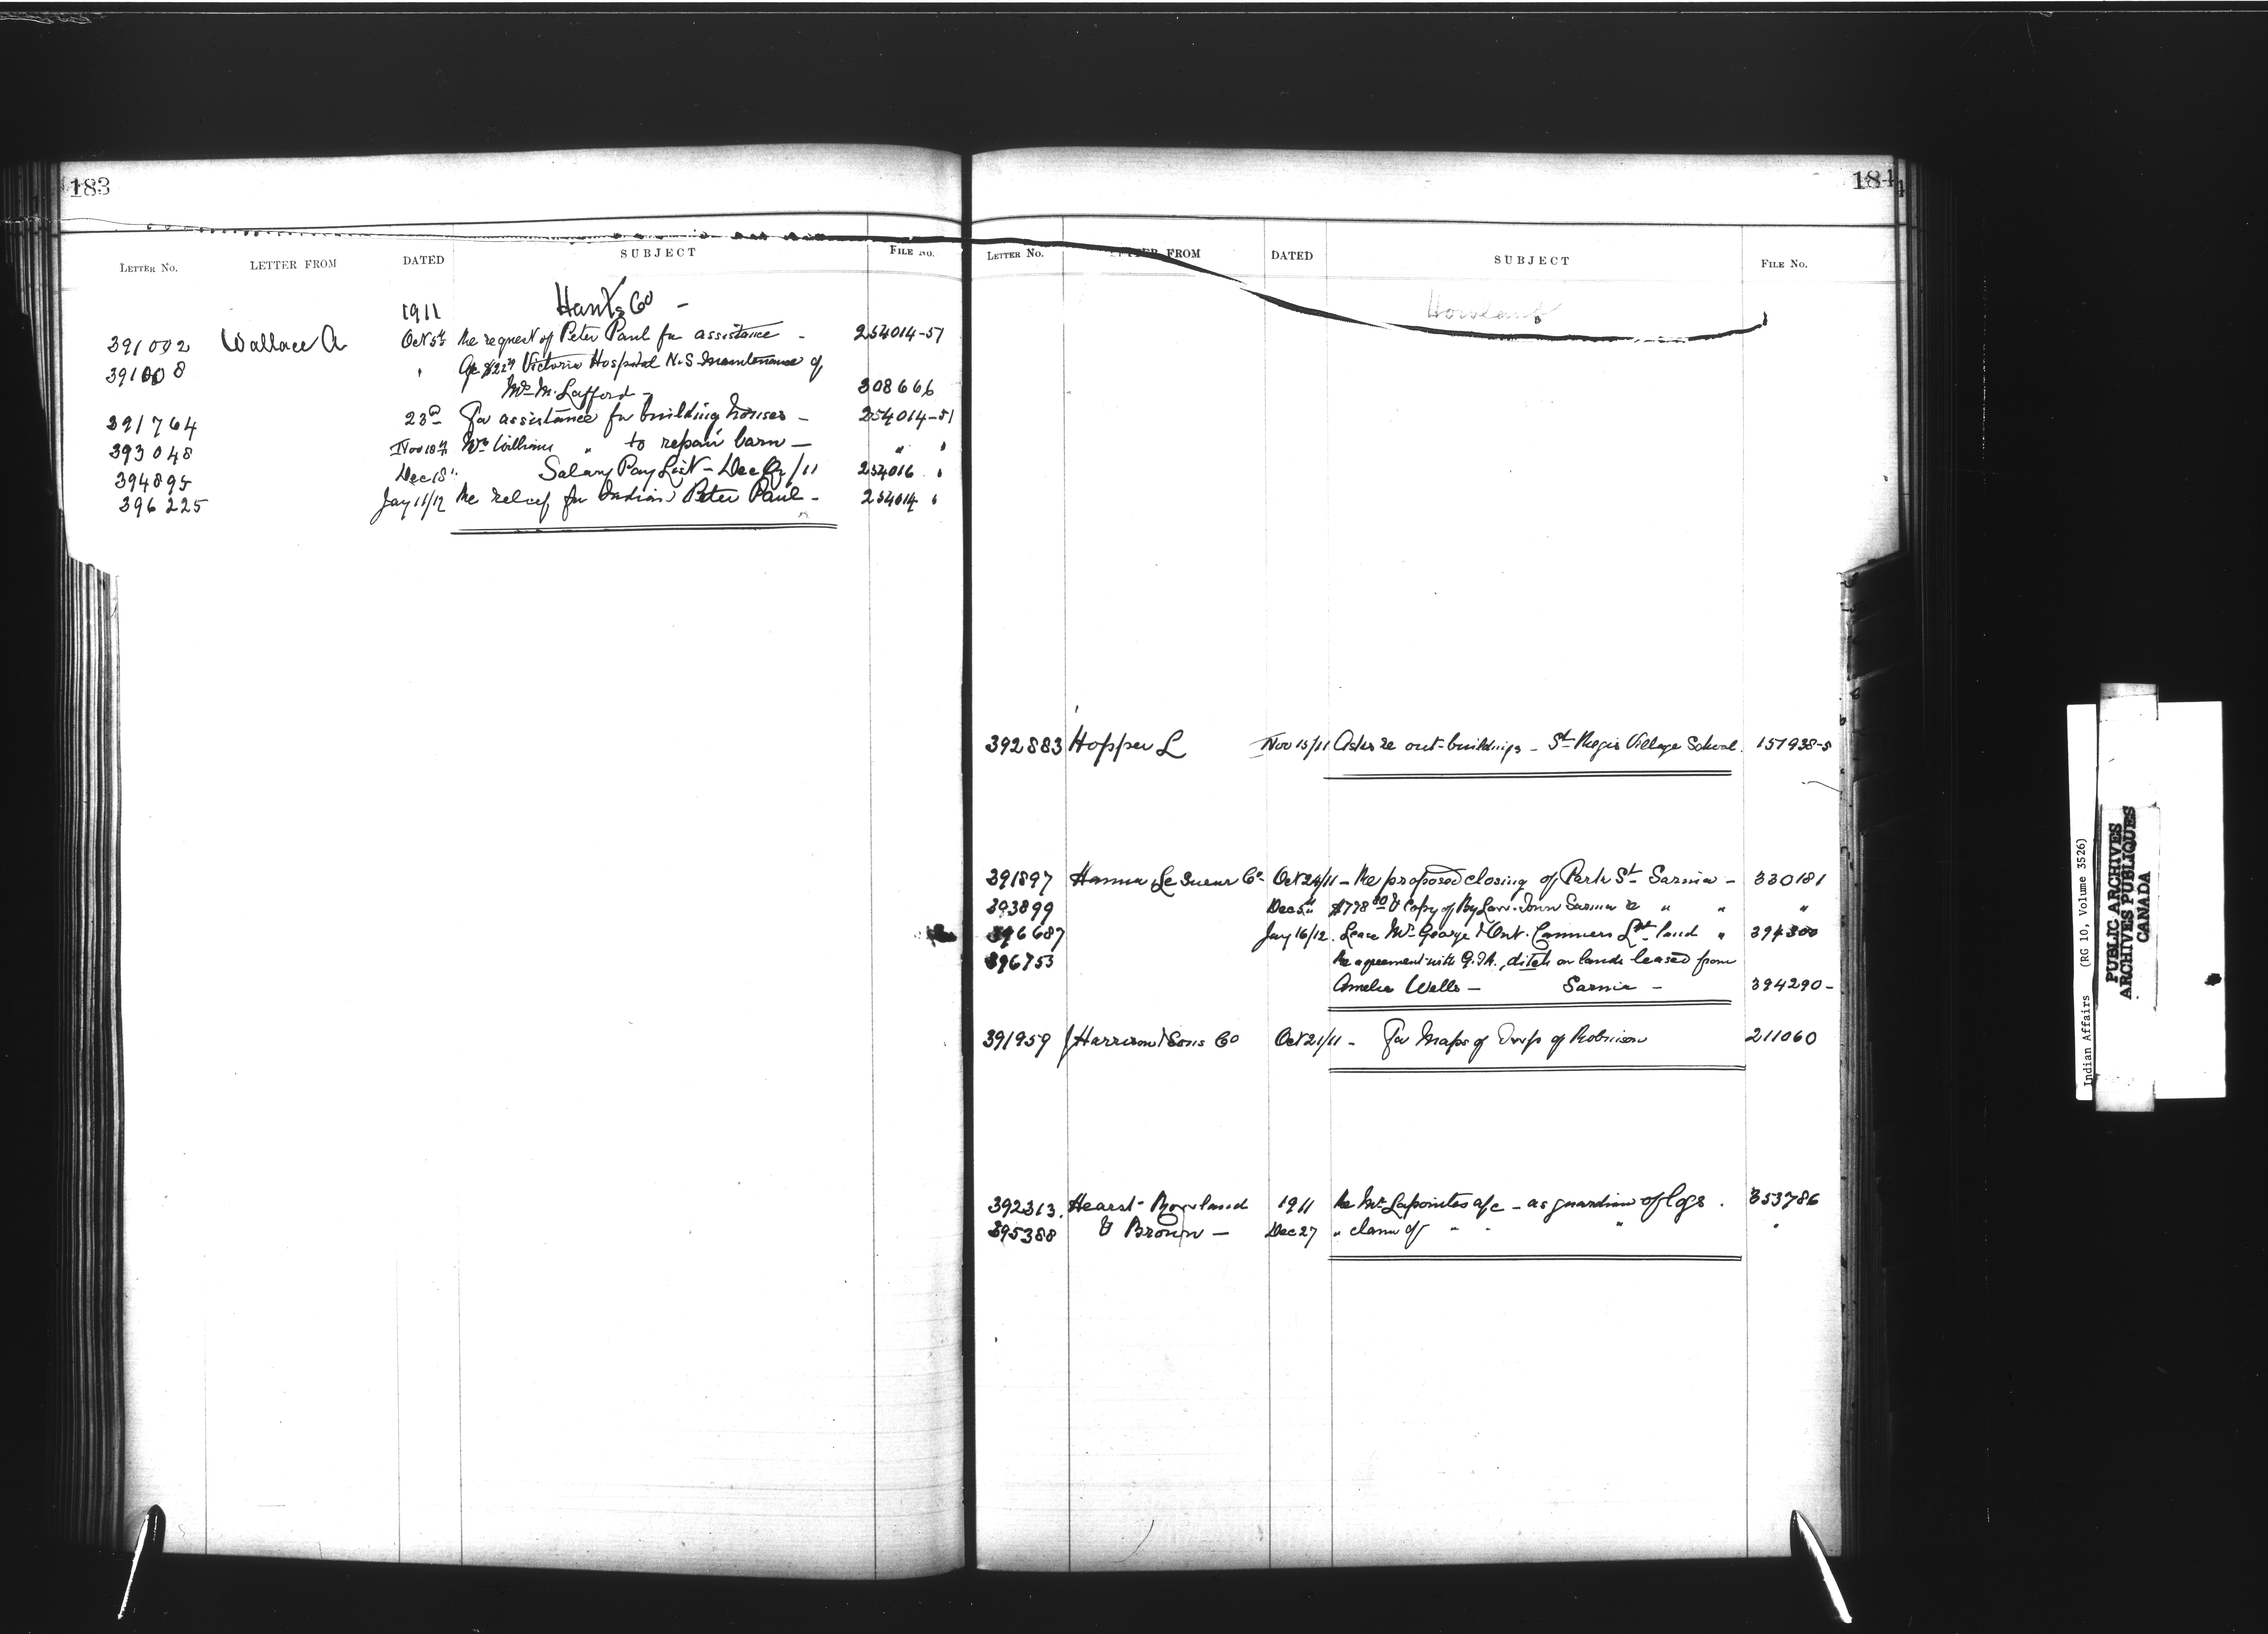 183
LETTER No. LETTER FROM DATED SUBJECT FILE No.
1911 Hants Co -
391002 Wallace A Oct 5th Re request of Peter Paul for assistance - 254014-51
391008 " a/c $22 Victoria Hospital N.S. Maintenance of
Mrs M. Lafford - 308666
391764 23rd For assistance for building houses - 254014-51
393048 Nov 18th Wm Williams " to repair barn - " "
394895 Dec 18 " Salary Pay List - Dec Qr/11 254016 "
396225 Jay 11/12 Re relief for Indian Peter Paul - 254014 "
184
LETTER No. LETTER FROM DATED SUBJECT FILE No.
392883 Hopper L Nov 15/11 Asks re out-buildings - St Regis Village School. 157938-5
391897 Hanna Le Sueur Co Oct 24/11 - Re proposed closing of Park St Sarnia - 330181
393899 Dec 5th $778 & Copy of By Law. Town Sarnia re " " "
396687 Jay 16/12. Lease Mrs George & Ont. Canners Ltd land " 394300
396753 Re agreement with G.T.R., ditch on lands leased from
Amelia Wells - Sarnia - 394290-
391959 Harrison & Sons Co Oct 21/11 - For Maps of Twps of Robinson 211060
392313. Hearst - Rowland 1911 Re Mr Lapointes a/c - as guardian of logs . 353786
395388 & Brown - Dec 27 " claim of " " " "
Indian Affairs (RG 10, Volume 3526)
PUBLIC ARCHIVES
ARCHIVES PUBLIQUES
CANADA